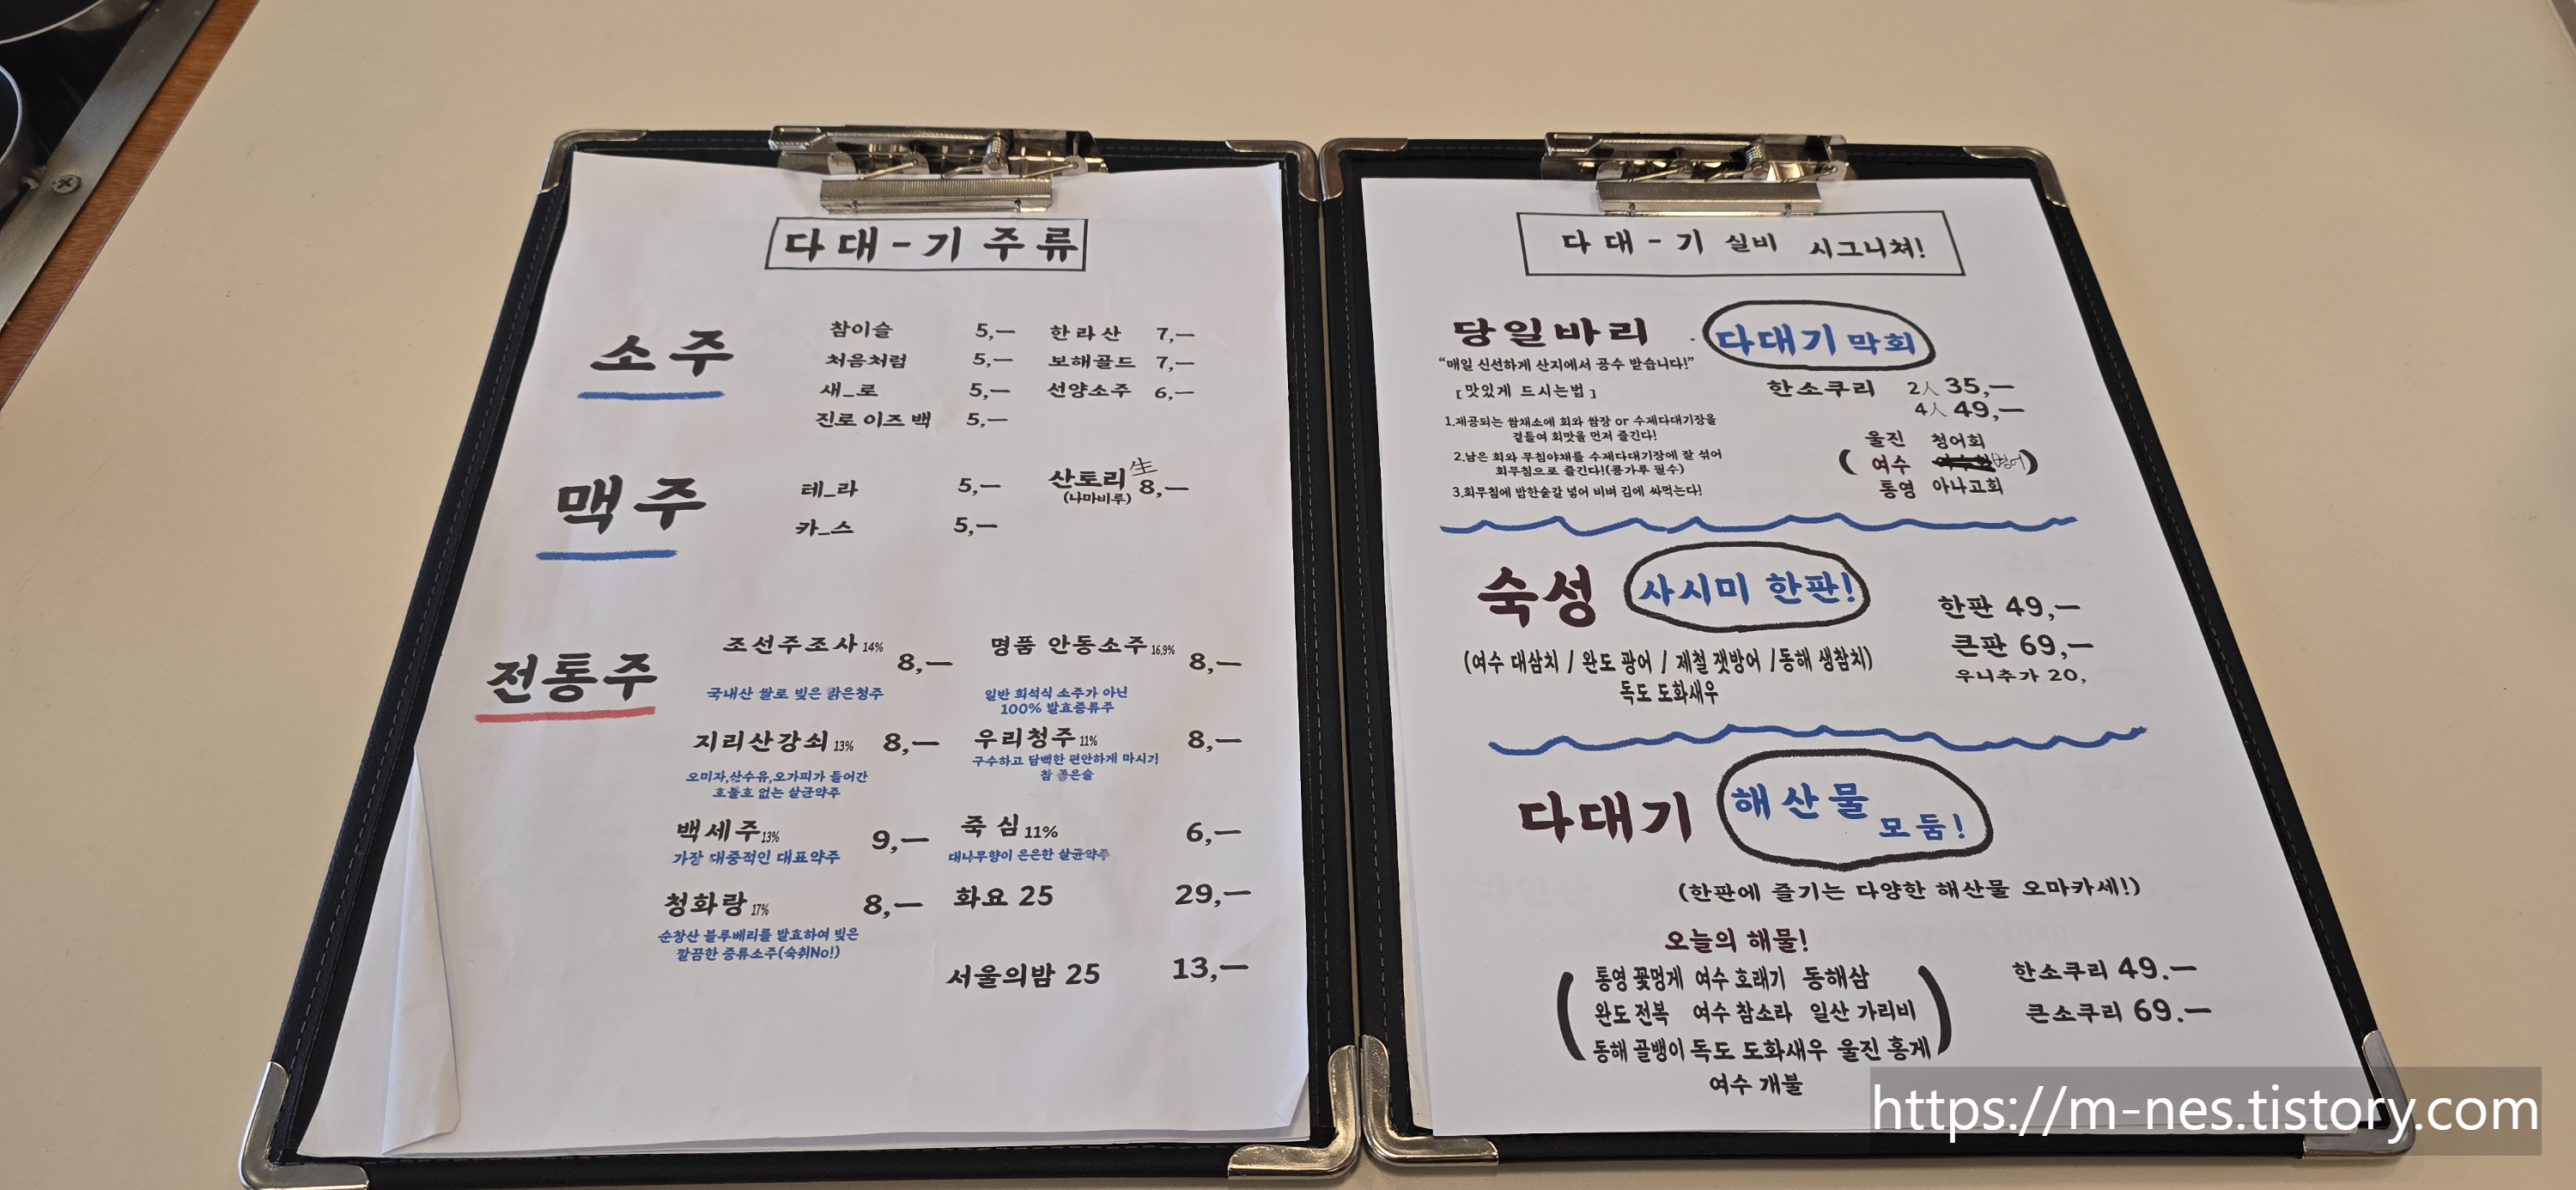 다대-기 주류
소주
참이슬 5,— 한라산 7,—
처음처럼 5,— 보해골드 7,—
새_로 5,— 선양소주 6,—
진로 이즈 백 5,—
맥주
테_라 5,— 산토리生 8,—
(나마비루)
카_스 5,—
전통주
조선주조사 14% 8,—
국내산 쌀로 빚은 맑은청주
명품 안동소주 16,9% 8,—
일반 희석식 소주가 아닌
100% 발효증류주
지리산강쇠 13% 8,—
오미자,산수유,오가피가 들어간
호불호 없는 살균약주
우리청주 11% 8,—
구수하고 담백한 편안하게 마시기
참 좋은술
백세주 13% 9,—
가장 대중적인 대표약주
죽 심 11% 6,—
대나무향이 은은한 살균약주
청화랑 17% 8,—
순창산 블루베리를 발효하여 빚은
깔끔한 증류소주(숙취No!)
화요 25 29,—
서울의밤 25 13,—
다대-기 실비 시그니쳐!
당일바리 다대기 막회
“매일 신선하게 산지에서 공수 받습니다!”
[맛있게 드시는법]
1.제공되는 쌈채소에 회와 쌈장 or 수제다대기장을
곁들여 회맛을 먼저 즐긴다!
2.남은 회와 무침야채를 수제다대기장에 잘 섞어
회무침으로 즐긴다!(콩가루 필수)
3.회무침에 밥한숟갈 넣어 비벼 김에 싸먹는다!
한소쿠리 2人 35,—
4人 49,—
(울진 청어회
여수
통영 아나고회)
숙성 사시미 한판!
(여수 대삼치 / 완도 광어 / 제철 잿방어 / 동해 생참치)
독도 도화새우
한판 49,—
큰판 69,—
우니추가 20,
다대기 해산물 모둠!
(한판에 즐기는 다양한 해산물 오마카세!)
오늘의 해물!
(통영 꽃멍게 여수 호래기 동해삼
완도 전복 여수 참소라 일산 가리비
동해 골뱅이 독도 도화새우 울진 홍게)
여수 개불
한소쿠리 49.—
큰소쿠리 69.—
https://m-nes.tistory.com